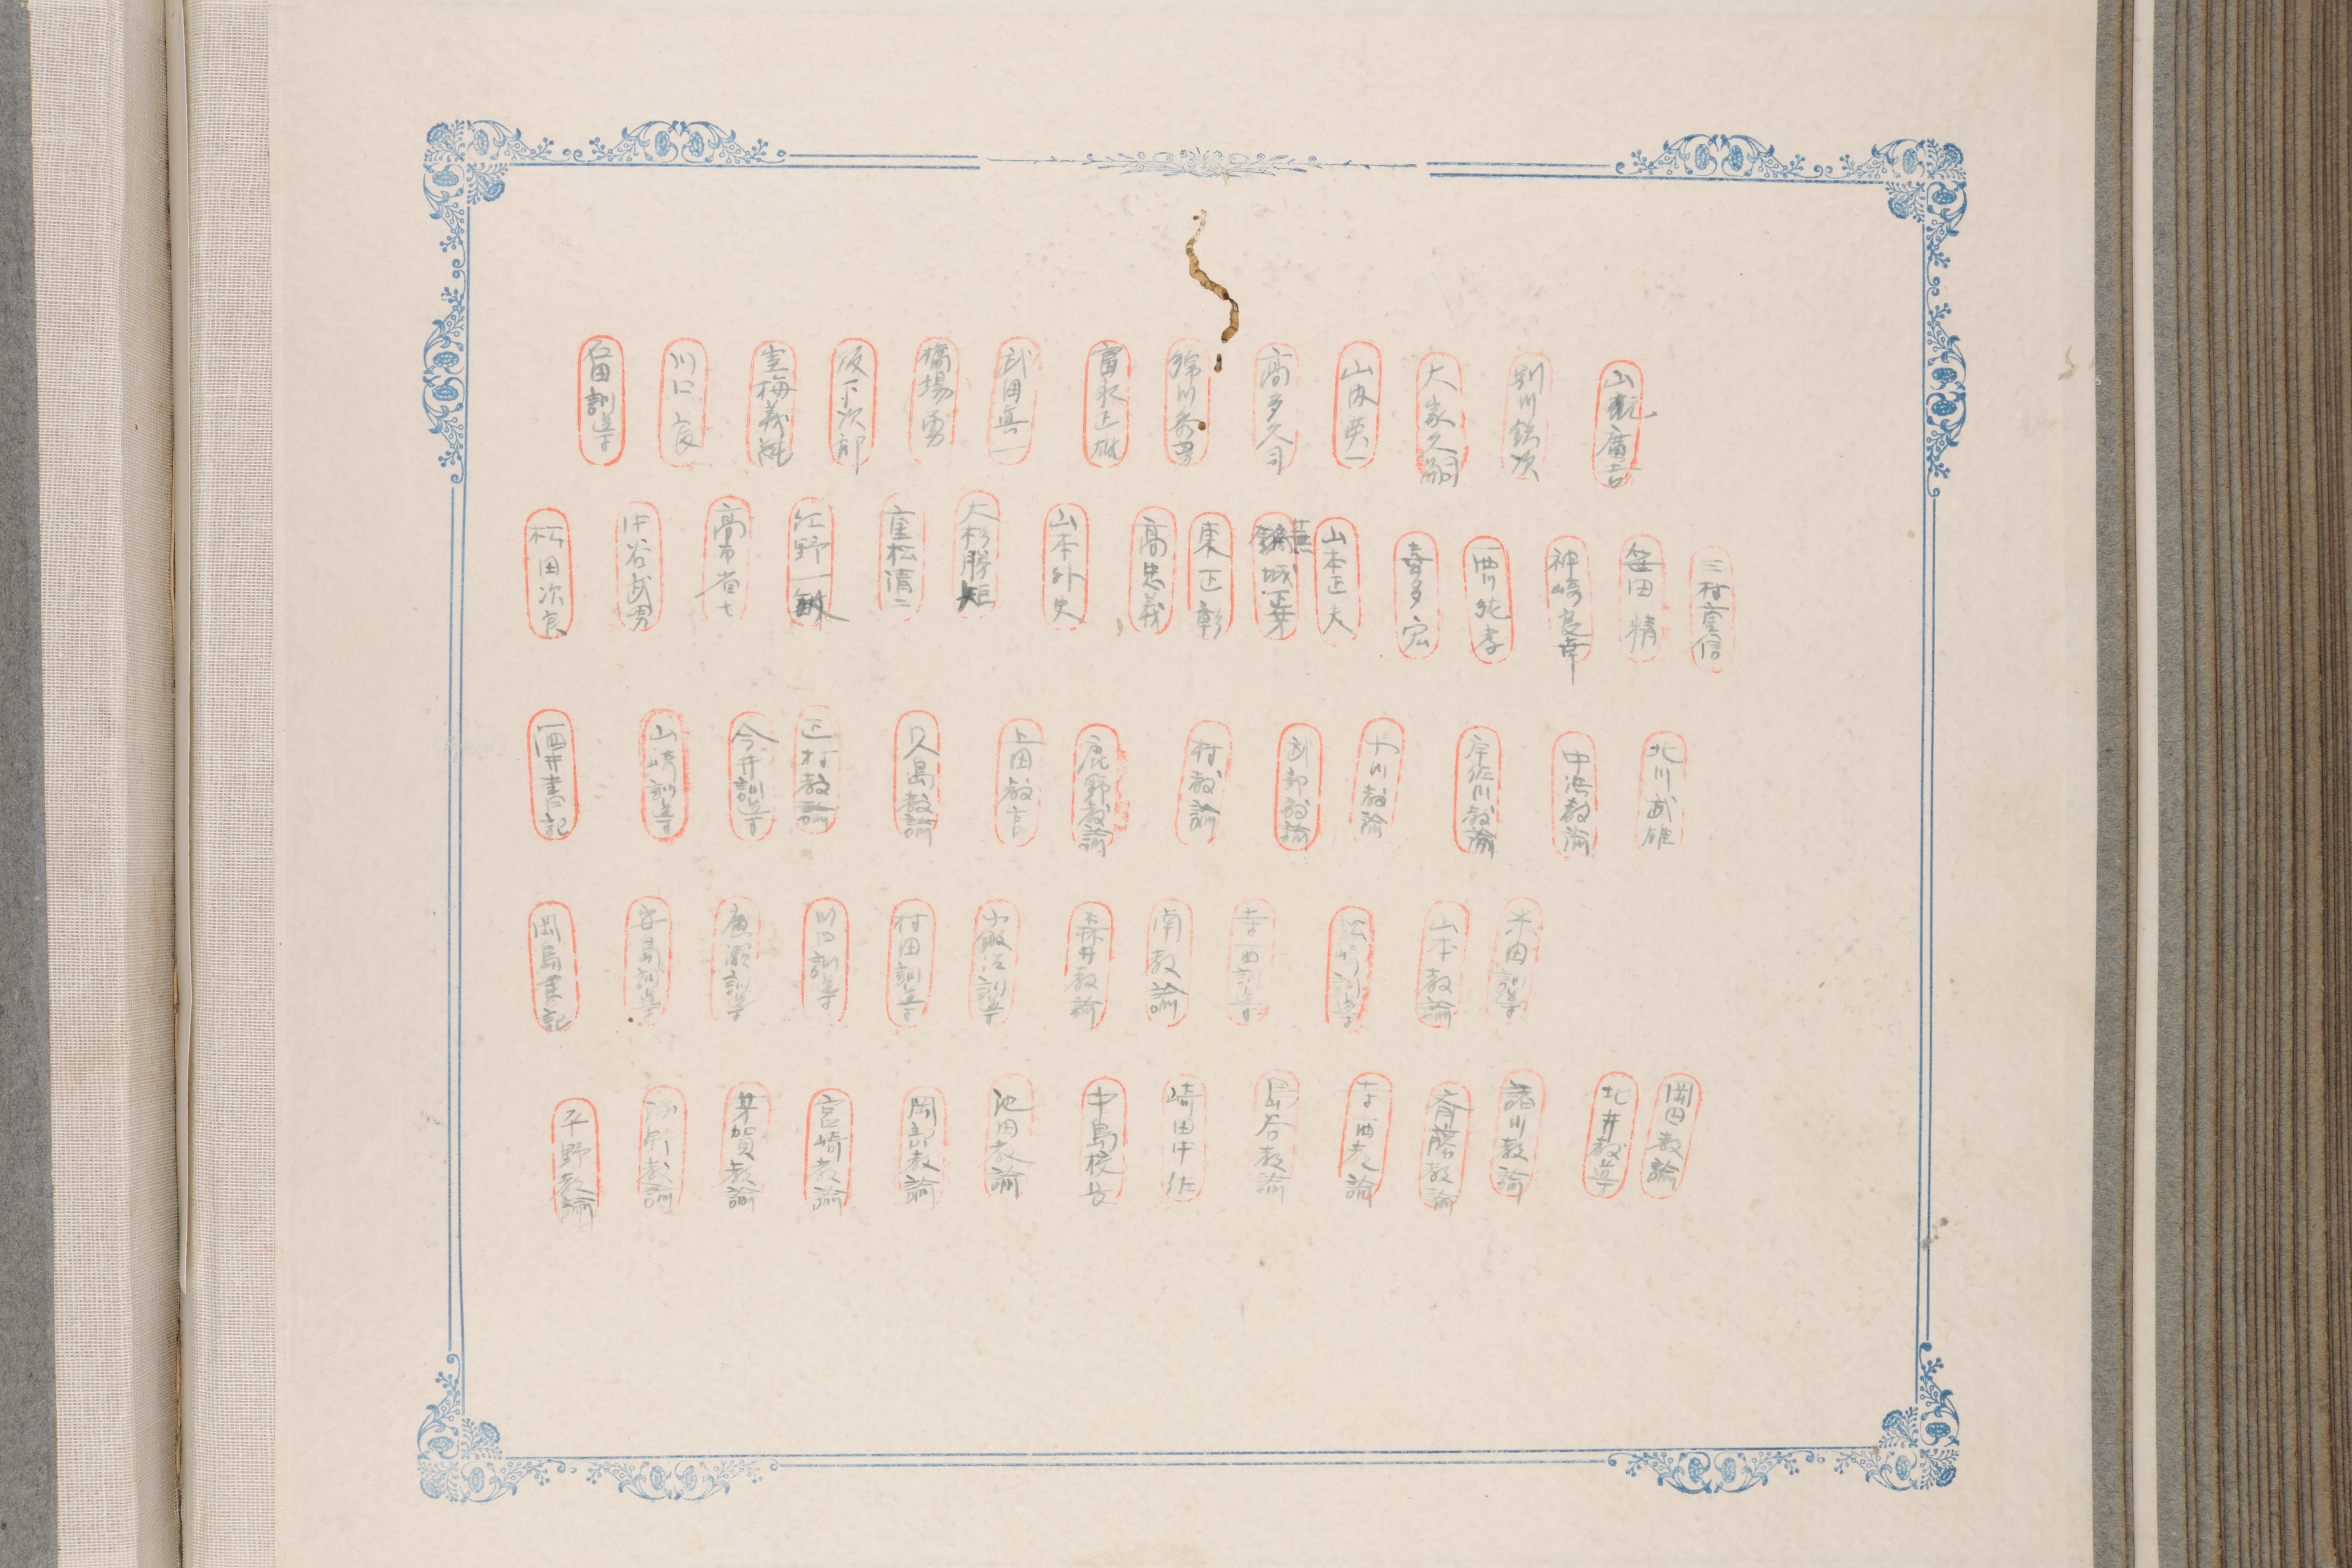 山 廣吉
別川 次
大家久嗣
山内英一
高多久司
川
富永正雄
武田真一
橋場勇
坂下次郎
室梅義
川口良
田訓導
三村重信
笹田精
神崎良幸
西川純孝
喜多宏
山本正夫
鏑城
東正彰
高忠義
山本外史
大杉勝矩
重松清二
江野一敏
高市省七
中谷武男
松田次良
北川武雄
中浜教諭
宇佐川教諭
川教諭
教諭
村教諭
鹿野教諭
上田教官
久島教諭
正村教諭
今井訓導
山崎訓導
酒井書記
米田訓導
山本教諭
松崎訓導
寺西訓導
南教諭
森井教諭
訓導
村田訓導
川口訓導
廣瀬訓導
訓導
岡島書記
岡田教諭
北井教導
諸川教諭
斉藤教諭
寺西教諭
島谷教諭
崎田中佐
中島校長
池田教諭
岡部教諭
宮崎教諭
芽賀教諭
野教諭
平野教諭